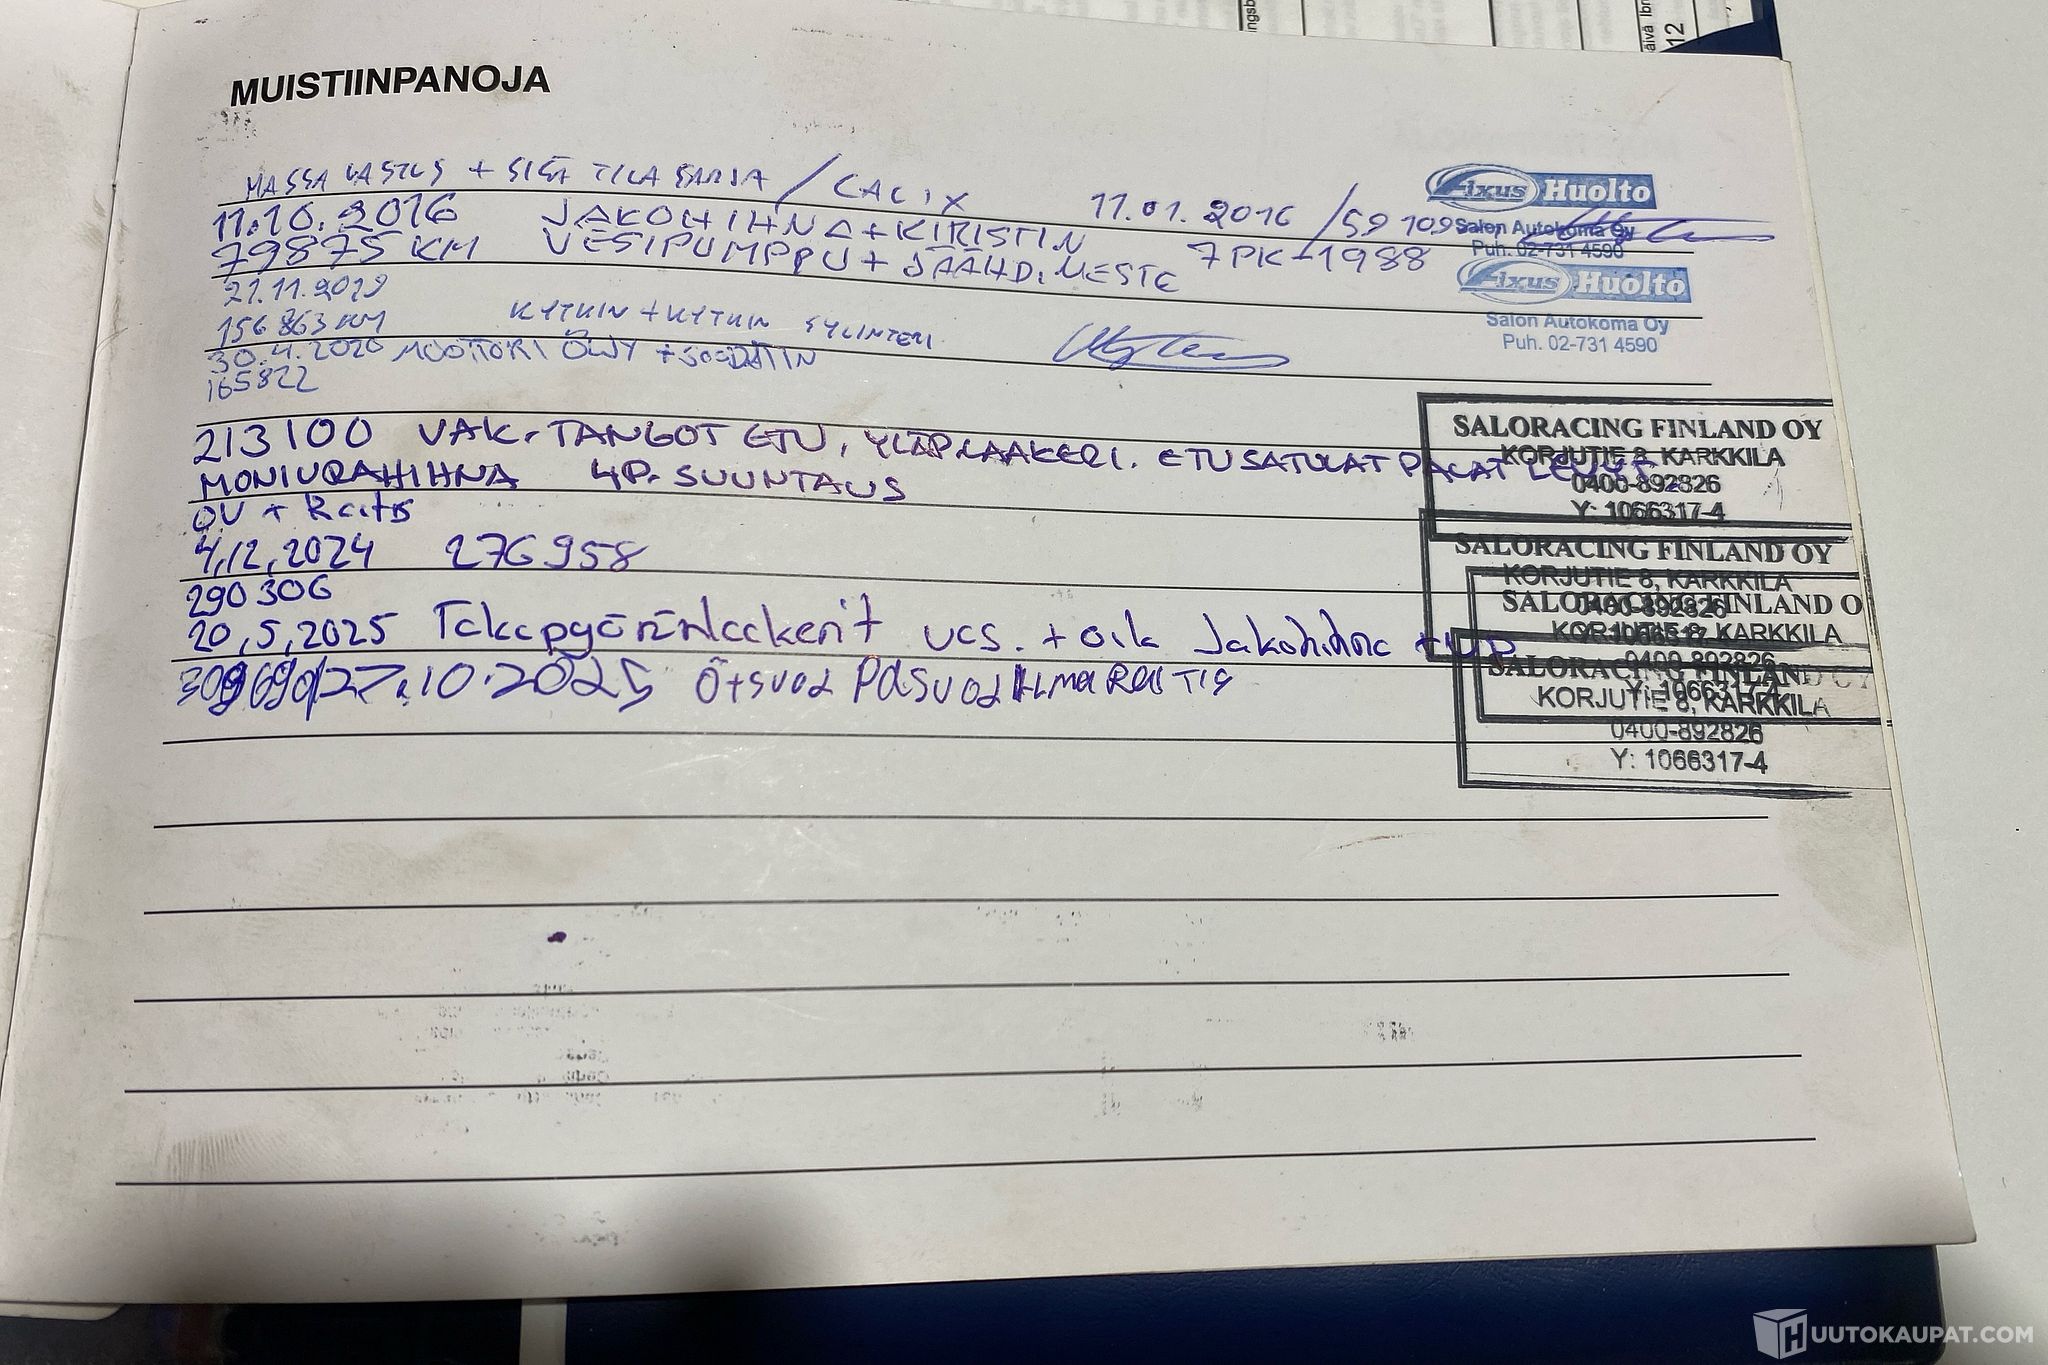 MUISTIINPANOJA
MASSA VASTUS + SISÄ TILA SARJA / CALIX 11.01.2016 / 59 109
11.10.2016 JAKOHIHNA + KIRISTIN
79875 KM VESIPUMPPU + JÄÄHD. NESTE 7PK-1988
21.11.2019
KM KYTKIN + KYTKIN SYLINTERI
30.4.2020 MOOTTORI ÖLJY + SUODATIN
165822
213100 VAK. TANGOT ETU, YLÄP LAAKERI. ETUSATULAT PALAT LEVYT.
MONIURAHIHNA 4P. SUUNTAUS
ÖV +
4,12,2024 276958
290306
20,5,2025 Takapyöränlaakerit vas. + oik Jakohihna + VP
27.10.2025
Fixus Huolto
Salon Autokoma Oy
Puh. 02-731 4590
Fixus Huolto
Salon Autokoma Oy
Puh. 02-731 4590
SALORACING FINLAND OY
KORJUTIE 8, KARKKILA
0400-892826
Y: 1066317-4
SALORACING FINLAND OY
KORJUTIE 8, KARKKILA
0400-892826
SALORACING FINLAND O
KORJUTIE 8, KARKKILA
0400-892826
Y: 1066317-4
SALORACING FINLAND OY
KORJUTIE 8, KARKKILA
0400-892826
Y: 1066317-4
12
HUUTOKAUPAT.COM